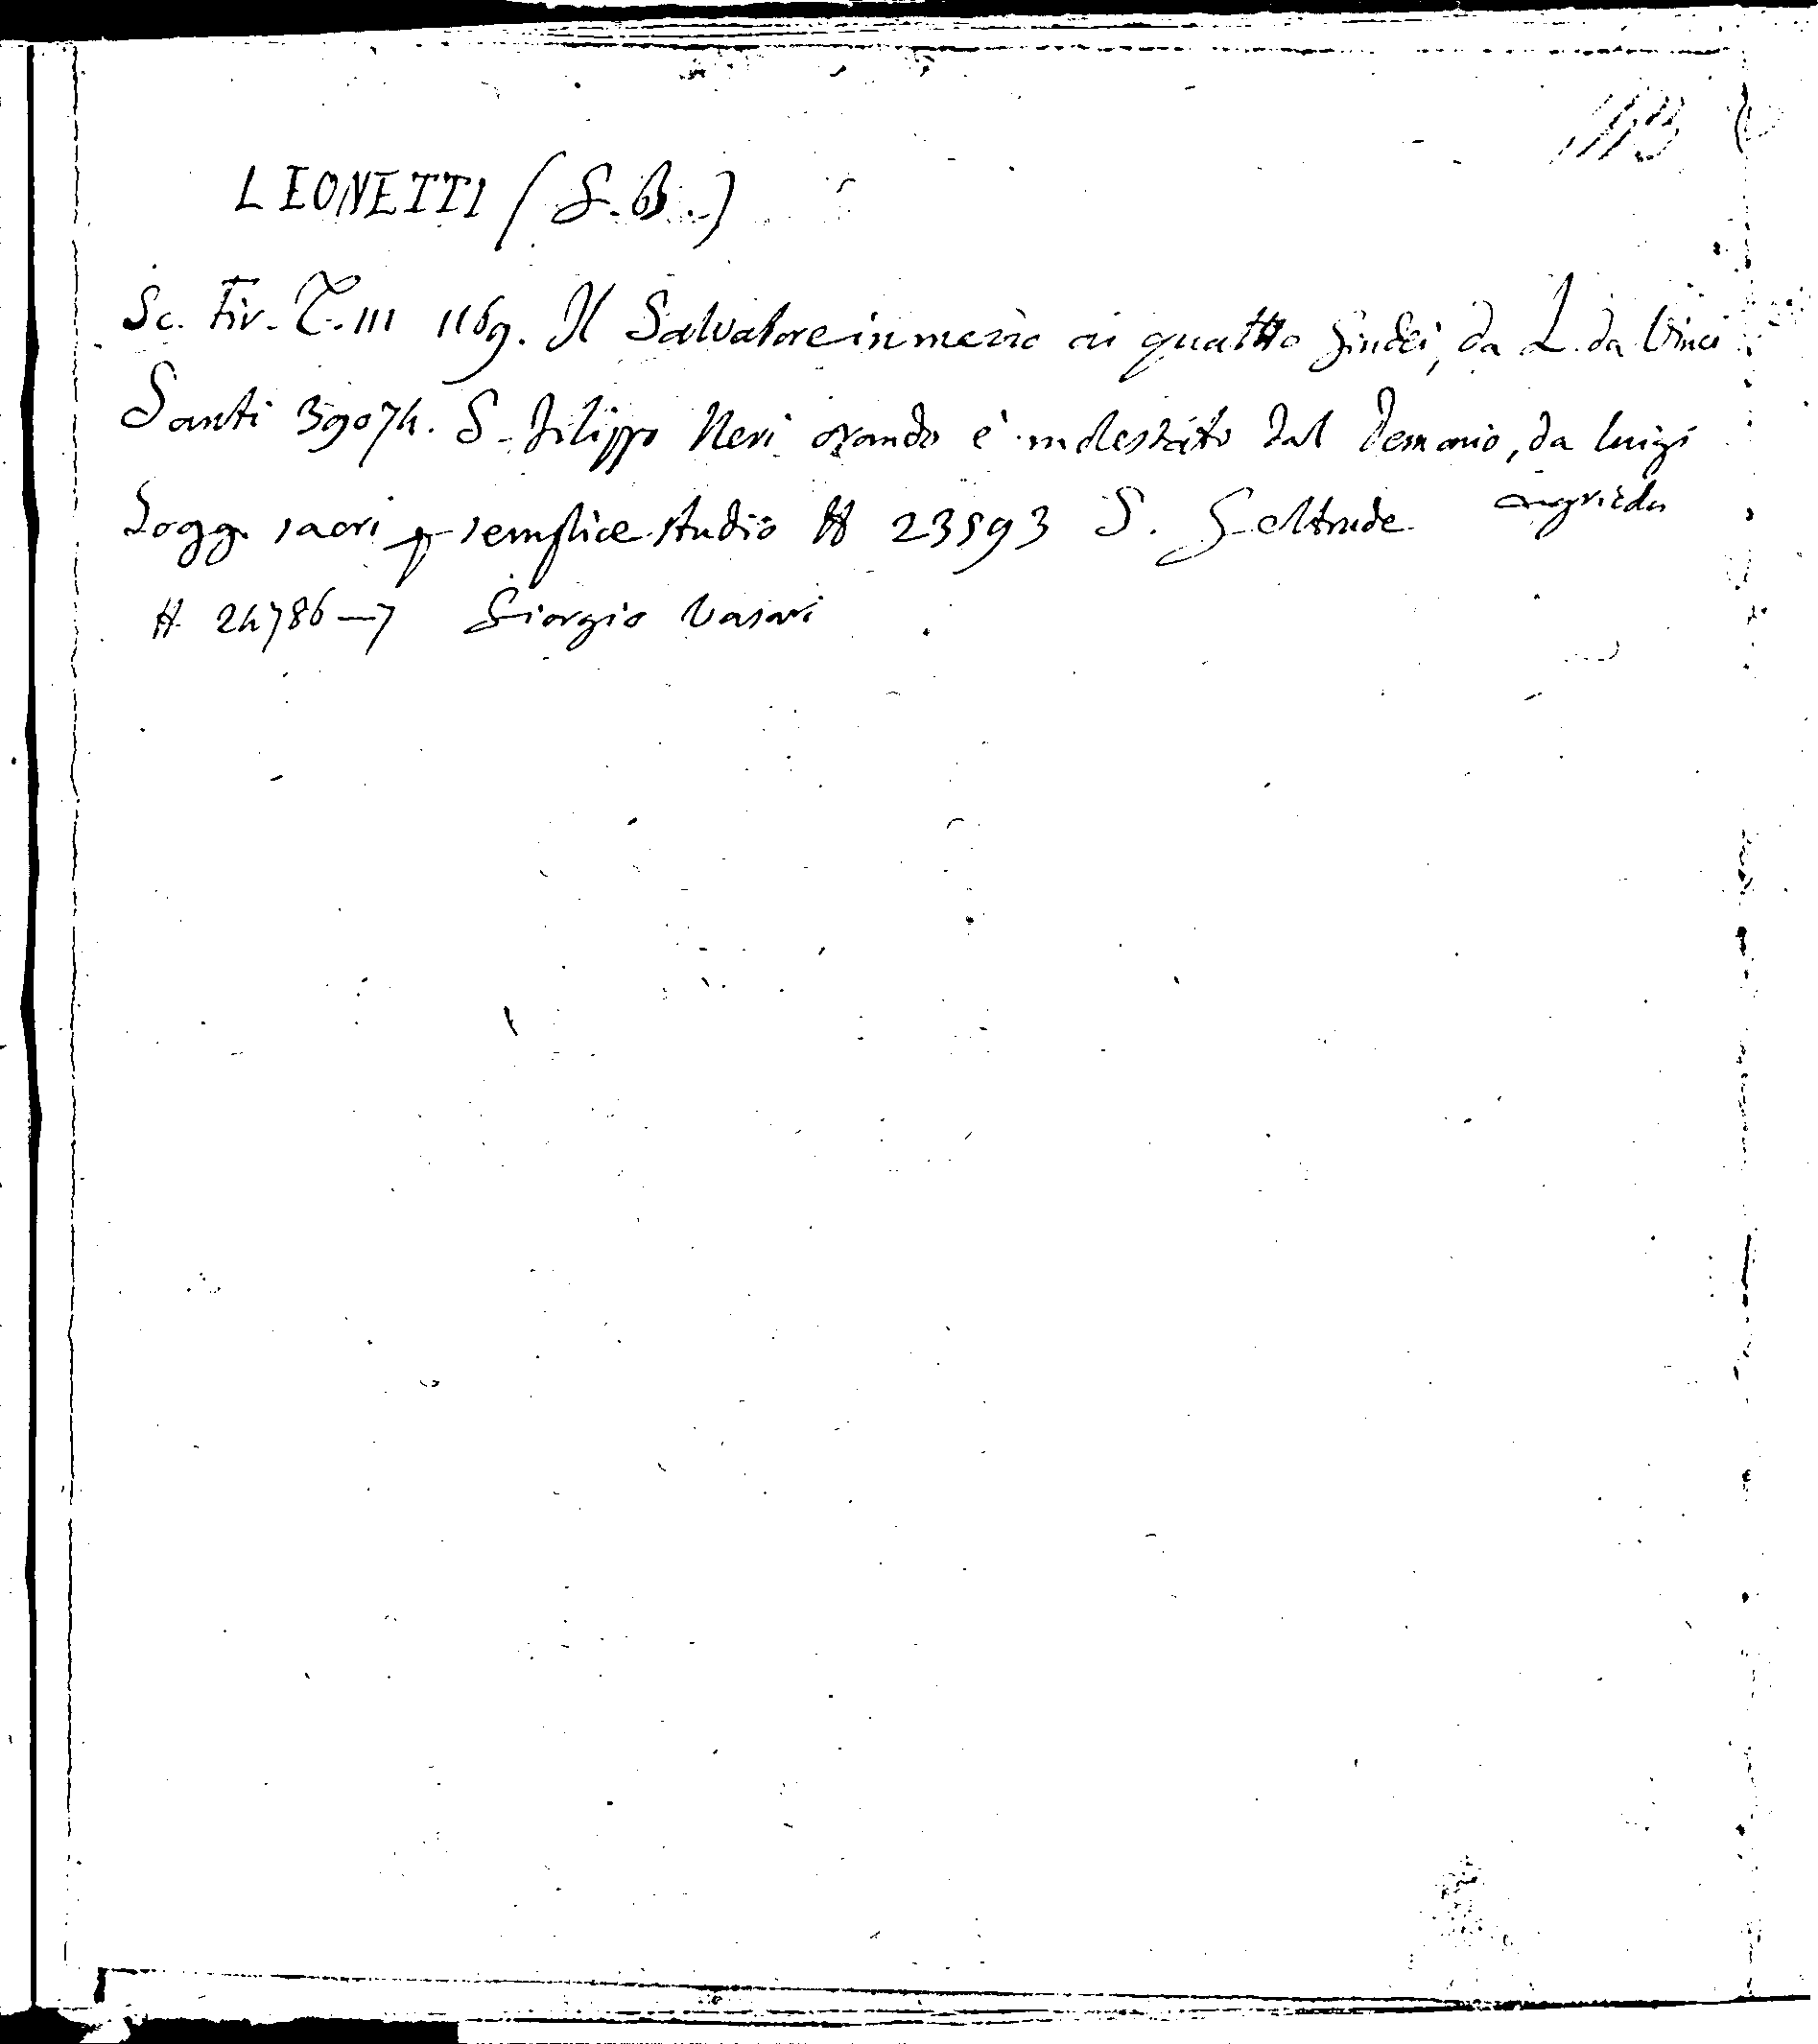 LIONETTI (G. B.)
Sc. Fir. T. III 1169. Il Salvatore in mezzo ai quattro Giudei, da L. da Vinci
Santi 39074. S. Filippo Neri orando è molestato dal Demonio, da Luigi
Sogg. sacri p semplice studio # 23593 S. Geltrude
# 24786—7 Giorgio Vasari